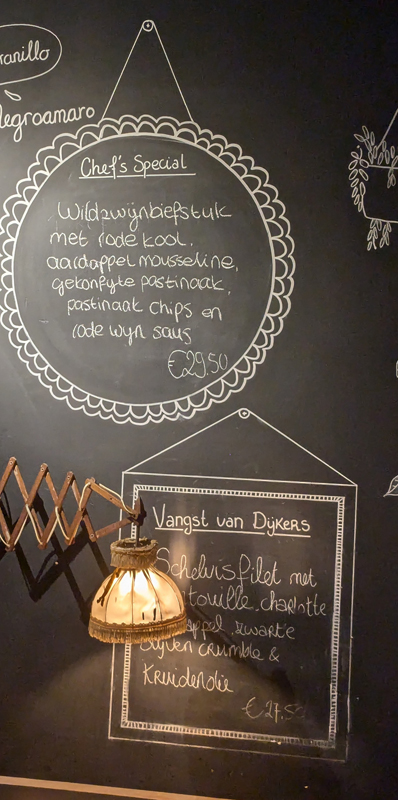 ranillo
legroamaro
Chef's Special
Wildzwijnbiefstuk
met rode kool,
aardappel mousseline,
gekonfijte pastinaak,
pastinaak chips en
rode wijn saus
€29.50
Vangst van Dijkers
Schelvisfilet met
touille, charlotte
appel, zwarte
olijven crumble &
Kruidenolie
€27.50